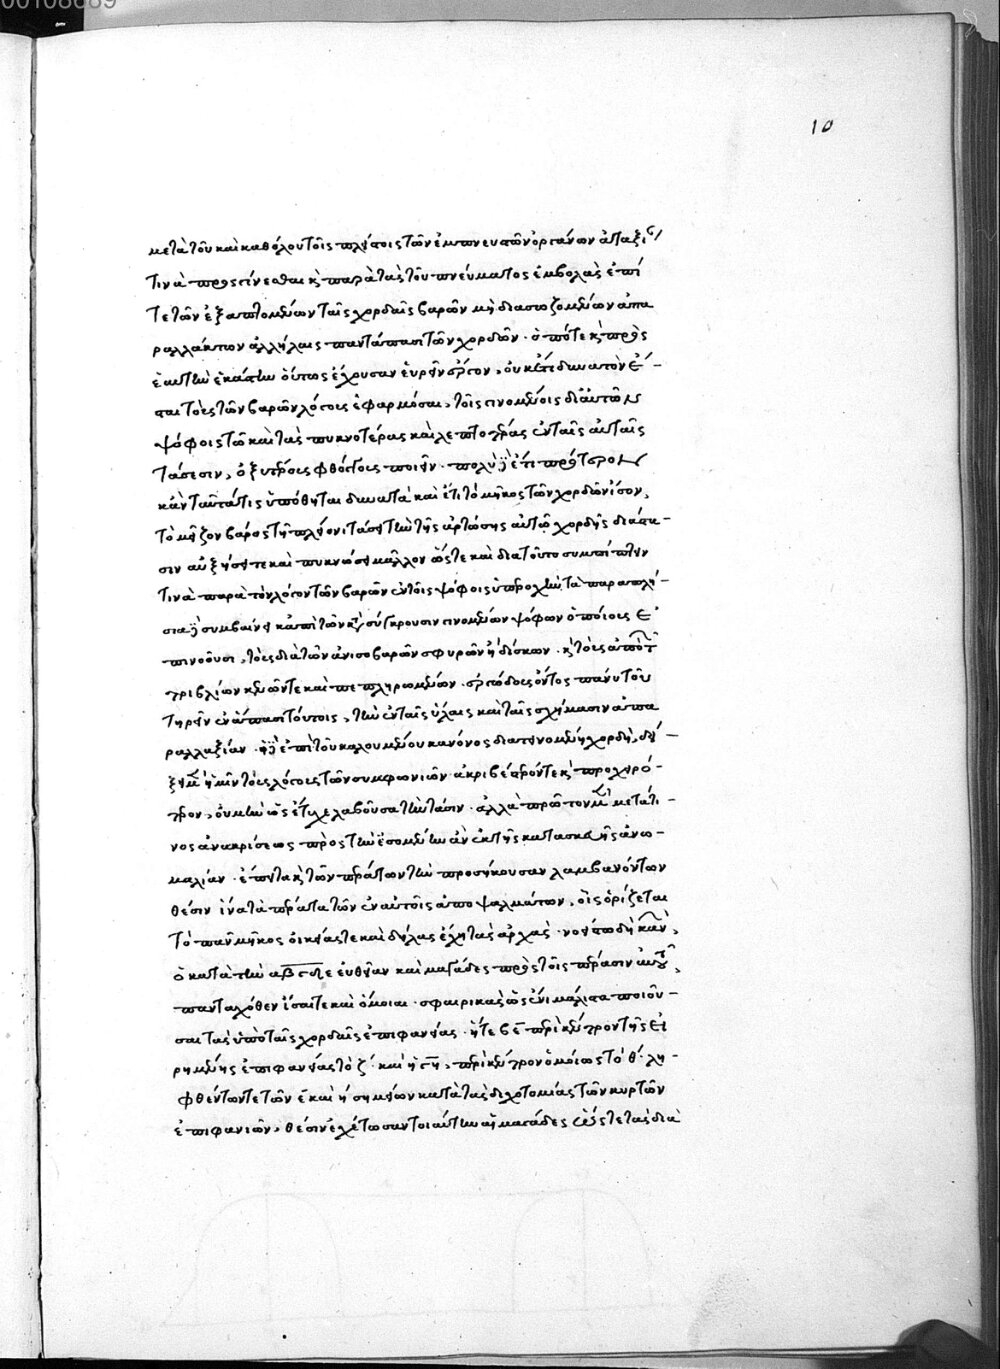 μετὰ τοῦ καὶ καθόλου τοῖς πλείστοις τῶν ἐμπνευστῶν ὀργάνων ἀταξί(αν)
τινὰ προσγίνεσθαι κ(αὶ) παρὰ τὰς τοῦ πνεύματος ἐμβολὰς ἐπί
τε τῶν ἐξαπτομένων ταῖς χορδαῖς βαρῶν μὴ διασωζομένων ἀπα
ραλλάκτων ἀλλήλαις παντάπασι τῶν χορδῶν · ὁπότε κ(αὶ) πρὸς
ἑαυτὴν ἑκάστην οὕτως ἔχουσαν εὑρεῖν ἔργον, οὐκέτι δυνατὸν ἔ-
σται τοὺς τῶν βαρῶν λόγους ἐφαρμόσαι, τοῖς γινομένοις δι' αὐτῶν
ψόφοις τῶ καὶ τὰς πυκνοτέρας καὶ λεπτοτέρας ἐν ταῖς αὐταῖς
τάσεσιν, ὀξυτέρους φθόγγους ποιεῖν · πολὺ δὲ ἔτι πρότερον
κἂν ταῦτά τις ὑπόθηται δυνατὰ καὶ ἔτι τὸ μῆκος τῶν χορδῶν ἴσον,
τὸ μεῖζον βάρος τῆ πλείονι τάσει τὴν τῆς ἀρτώσης αὐτῶ χορδῆς διάστα-
σιν αὐξήσει τε καὶ πυκνώσει μᾶλλον ὥστε καὶ διὰ τοῦτο συμπίπτειν
τινὰ παρὰ τὸν λόγον τῶν βαρῶν ἐν τοῖς ψόφοις ὑπεροχὴν τὰ παραπλή-
σια δὲ συμβαίνει κἀπὶ τῶν κ(ατὰ) σύγκρουσιν γινομένων ψόφων ὁποίους ἐ
πινοοῦσι, τοὺς διὰ τῶν ἀνισοβαρῶν σφυρῶν ἢ δίσκων · κ(αὶ) τοὺς ἀπὸ τ(ῶν)
τρυβλίων κενῶν τε καὶ πεπληρωμένων · ἐργώδους ὄντος πάνυ τοῦ
τηρεῖν ἐν ἅπασι τούτοις, τὴν ἐν ταῖς ὕλαις καὶ ταῖς σχήμασιν ἀπα
ραλλαξίαν · ἡ δὲ ἐπὶ τοῦ καλουμένου κανόνος διατεινομένη χορδὴ, δεί-
ξει μ(ὲν) ἡμῖν τοὺς λόγους τῶν συμφωνιῶν ἀκριβέστερόν τε κ(αὶ) προχειρό-
τερον, οὐ μὴν ὡς ἔτυχε λαβοῦσα τὴν τάσιν · ἀλλὰ πρῶτον μ(ὲν) μετά τι-
νος ἀνακρίσεως πρὸς τὴν ἐσομένην ἂν ἐκ τῆς κατασκευῆς ἀνω-
μαλίαν · ἔπειτα κ(αὶ) τῶν περάτων τὴν προσήκουσαν λαμβανόντων
θέσιν ἵνα τὰ πέρατα τῶν ἐν αὐτοῖς ἀποψαλμάτων, οἷς ὁρίζεται
τὸ πᾶν μῆκος οἰκείας τε καὶ δήλας ἔχη τὰς ἀρχάς · νοείσθω δὴ κανὼν,
ὁ κατὰ τὴν αβγδε εὐθεῖαν καὶ μαγάδες πρὸς τοῖς πέρασιν αὐτοῦ,
πανταχόθεν ἴσαι τε καὶ ὅμοιαι · σφαιρικὰς ὡς ἔνι μάλιστα ποιοῦ-
σαι τὰς ὑπὸ ταῖς χορδαῖς ἐπιφανείας · ἥ τε βε περὶ κέντρον τῆς εἰ
ρημένης ἐπιφανείας τὸ ζ · καὶ ἡ γη, περὶ κέντρον ὁμοίως τὸ θ · λη-
φθέντων τε τῶν ε καὶ η σημείων κατὰ τὰς διχοτομίας τῶν κυρτῶν
ἐπιφανειῶν, θέσιν ἐχέτωσαν τοιαύτην αἱ μαγάδες ὥστε τὰς διὰ